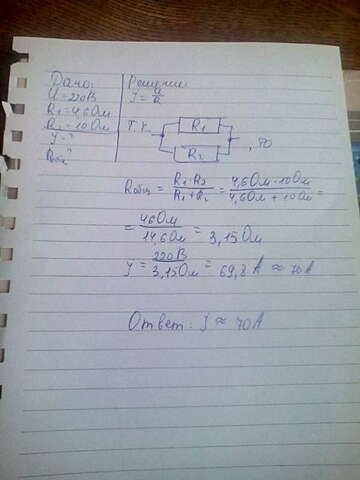 Дано:
U = 220В
R₁ = 4,6 Ом
R₂ = 10 Ом
У = ?
Rобщ ?
Решение
У = U/R
Т.к. R₁ R₂ , то
Rобщ = R₁·R₂/R₁+R₂ = 4,6 Ом·10 Ом/4,6 Ом + 10 Ом =
= 46 Ом/14,6 Ом = 3,15 Ом
У = 220В/3,15 Ом = 69,8 А ≈ 70 А
Ответ: У ≈ 70 А